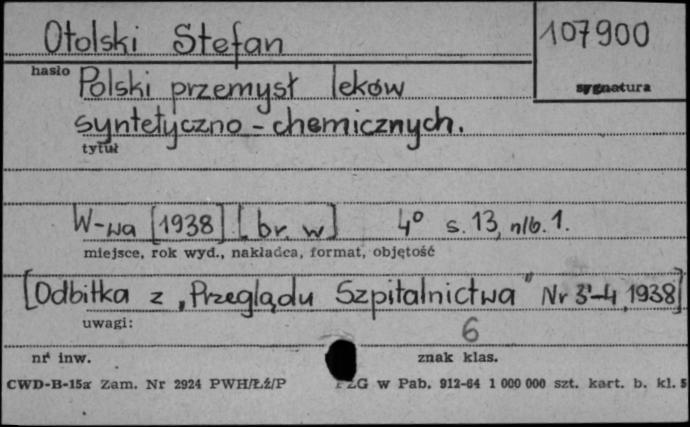 Otolski Stefan
107900
hasło
sygnatura
Polski przemysł leków
syntetyczno-chemicznych.
tytuł
W-wa [1938] [br. w] 4° s. 13, nlb. 1.
miejsce, rok wyd., nakładca, format, objętość
[Odbitka z „Przeglądu Szpitalnictwa" Nr 3-4, 1938]
uwagi:
6
nr inw.
znak klas.
CWD-B-15a Zam. Nr 2924 PWH/Łź/P
PZG w Pab. 912-64 1 000 000 szt. kart. b. kl. 5